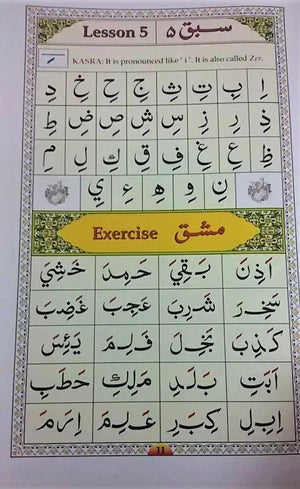 Lesson 5 سبق ۵
KASRA: It is pronounced like ' i '. It is also called Zer.
اِ بِ تِ ثِ جِ حِ خِ دِ
ذِ رِ زِ سِ شِ صِ ضِ طِ
ظِ عِ غِ فِ قِ كِ لِ مِ
نِ وِ هِ ءِ يِ
Exercise مشق
اَذِنَ بَقِيَ حَمِدَ خَشِيَ
سَخِرَ شَرِبَ عَجِبَ غَضِبَ
كَذِبَ بَخِلَ فَلِمَ يَئِسَ
اَبَتِ بَلَدِ مَلِكِ حَطَبِ
اِبِلِ كِبَرِ عَلِمَ اِرَمَ
11